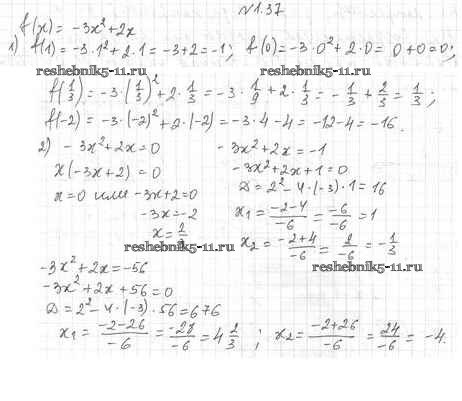 №1.37
f(x) = -3x² + 2x
1) f(1) = -3·1² + 2·1 = -3+2 = -1; f(0) = -3·0² + 2·0 = 0+0 = 0;
reshebnik5-11.ru reshebnik5-11.ru
f(1/3) = -3·(1/3)² + 2·1/3 = -3·1/9 + 2·1/3 = -1/3 + 2/3 = 1/3;
f(-2) = -3·(-2)² + 2·(-2) = -3·4-4 = -12-4 = -16.
2) -3x² + 2x = 0
x(-3x+2) = 0
x=0 или -3x+2=0
-3x=-2
x = 2/3
-3x² + 2x = -1
-3x² + 2x + 1 = 0
D = 2² - 4·(-3)·1 = 16
x₁ = (-2-4)/-6 = -6/-6 = 1
x₂ = (-2+4)/-6 = 2/-6 = -1/3
reshebnik5-11.ru
reshebnik5-11.ru
-3x² + 2x = -56
-3x² + 2x + 56 = 0
D = 2² - 4·(-3)·56 = 676
x₁ = (-2-26)/-6 = -28/-6 = 4 2/3 ; x₂ = (-2+26)/-6 = 24/-6 = -4.